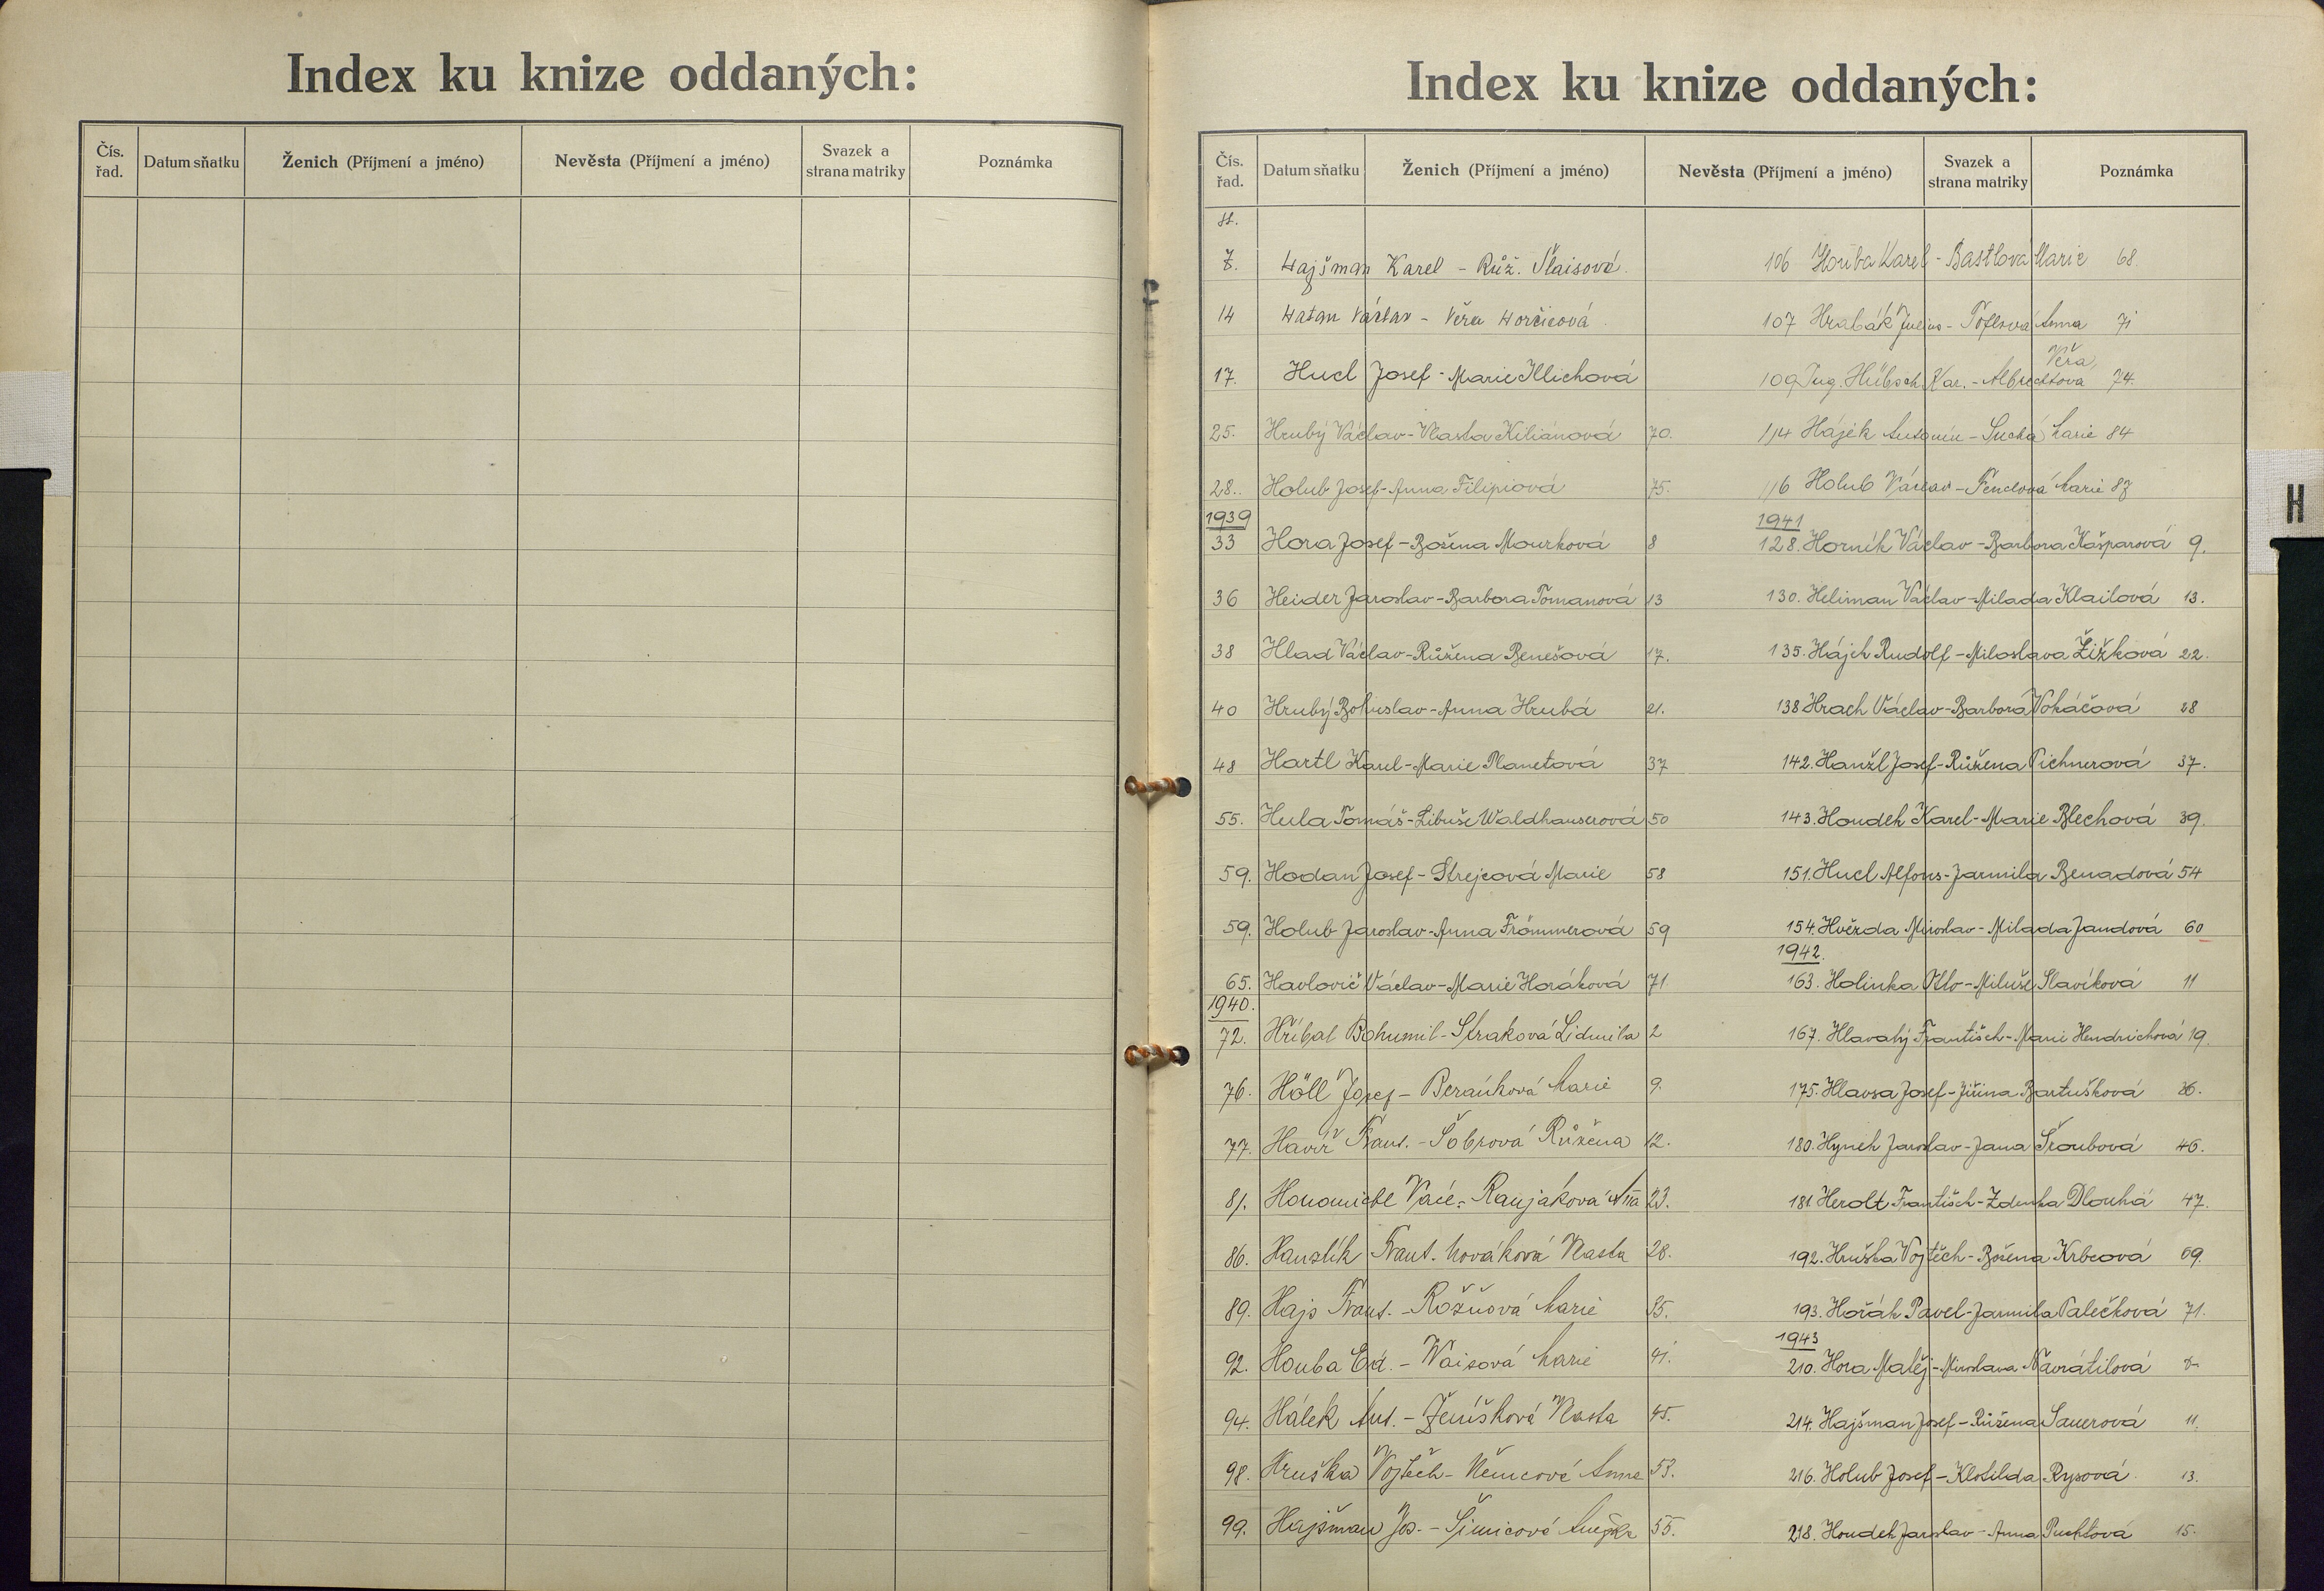 Index ku knize oddaných:
Čís. řad.
Datum sňatku
Ženich (Příjmení a jméno)
Nevěsta (Příjmení a jméno)
Svazek a strana matriky
Poznámka
Index ku knize oddaných:
Čís. řad.
Datum sňatku
Ženich (Příjmení a jméno)
Nevěsta (Příjmení a jméno)
Svazek a strana matriky
Poznámka
7. Hajšman Karel - Růž. Šlaisová.
14 Hatan Václav - Věra Horčicová.
17. Hucl Josef - Marie Illichová
25. Hrubý Václav - Vlasta Kiliánová 70.
28. Holub Josef - Anna Filipiová 75.
1939
33 Hora Josef - Božena Mourková 8
36 Heider Jaroslav - Barbora Tomanová 13
38 Hlad Václav - Růžena Benešová 17.
40 Hrubý Bohuslav - Anna Hrubá 21.
48 Hartl Karel - Marie Planetová 37
55. Hula Tomáš - Libuše Waldhauserová 50
59. Hodan Josef - Strejcová Marie 58
59. Holub Jaroslav - Anna Frömmerová 59
65. Havlovič Václav - Marie Horáková 71
1940.
72. Hříbal Bohumil - Straková Lidmila 2
76. Höll Josef - Beránková Marie 9.
77. Havíř Frant. - Šobrová Růžena 12.
81. Honomichl Vác. - Ranjaková Anna 23.
86. Hanzlík Frant. Nováková Vlasta 28.
89. Hajs Frant. - Rožňová Marie 35.
92. Houba Ed. - Waisová Marie 41.
94. Hálek Ant. - Ženíšková Vlasta 45.
98. Hruška Vojtěch - Němcová Anna 53.
99. Hajšman Jos. - Šimicová Anežka 55.
106 Houba Karel - Bastlová Marie 68.
107 Hrabák Julius - Töflová Anna 71
Věra
109 Ing. Hübsch Kar. - Albrechtova 74.
114 Hájek Antonín - Suchá Marie 84
116 Holub Václav - Fenclová Marie 87
1941
128. Horník Václav - Barbora Kašparová 9.
130. Heliman Václav - Milada Klailová 13.
135. Hájek Rudolf - Miloslava Žižková 22.
138 Hrach Václav - Barbora Vokáčová 28
142. Hanžl Josef - Růžena Pichnerová 37.
143. Houdek Karel - Marie Blechová 39.
151. Hucl Alfons - Jarmila Benadová 54
154. Hvězda Miroslav - Milada Jandová 60
1942.
163. Holinka Otto - Miluše Slavíková 11
167. Hlavatý František - Marie Hendrichová 19.
175. Hlavsa Josef - Jiřina Bartušková 36.
180. Hynek Jaroslav - Jana Šroubová 46.
181. Herolt František - Zdenka Dlouhá 47.
192. Hruška Vojtěch - Božena Krbcová 69.
193. Hořák Pavel - Jarmila Palečková 71.
1943
210. Hora Matěj - Miroslava Navrátilová
214. Hajšman Josef - Růžena Sauerová 11.
216. Holub Josef - Klotilda Rysová. 13.
218. Houdek Jaroslav - Anna Puchtová 15.
H